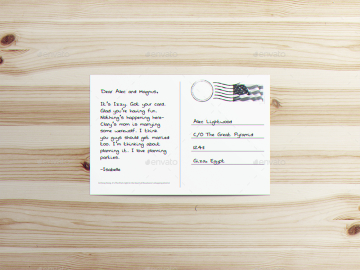 Dear Alec and Magnus,
It's Izzy. Got your card.
Glad you're having fun.
Nothing's happening here-
Clary's mom is marrying
some werewolf. I think
you guys should get married
too. I'm thinking about
planning it. I love planning
parties.
-Isabelle
Alec Lightwood
C/O The Great Pyramid
Giza, Egypt
envato